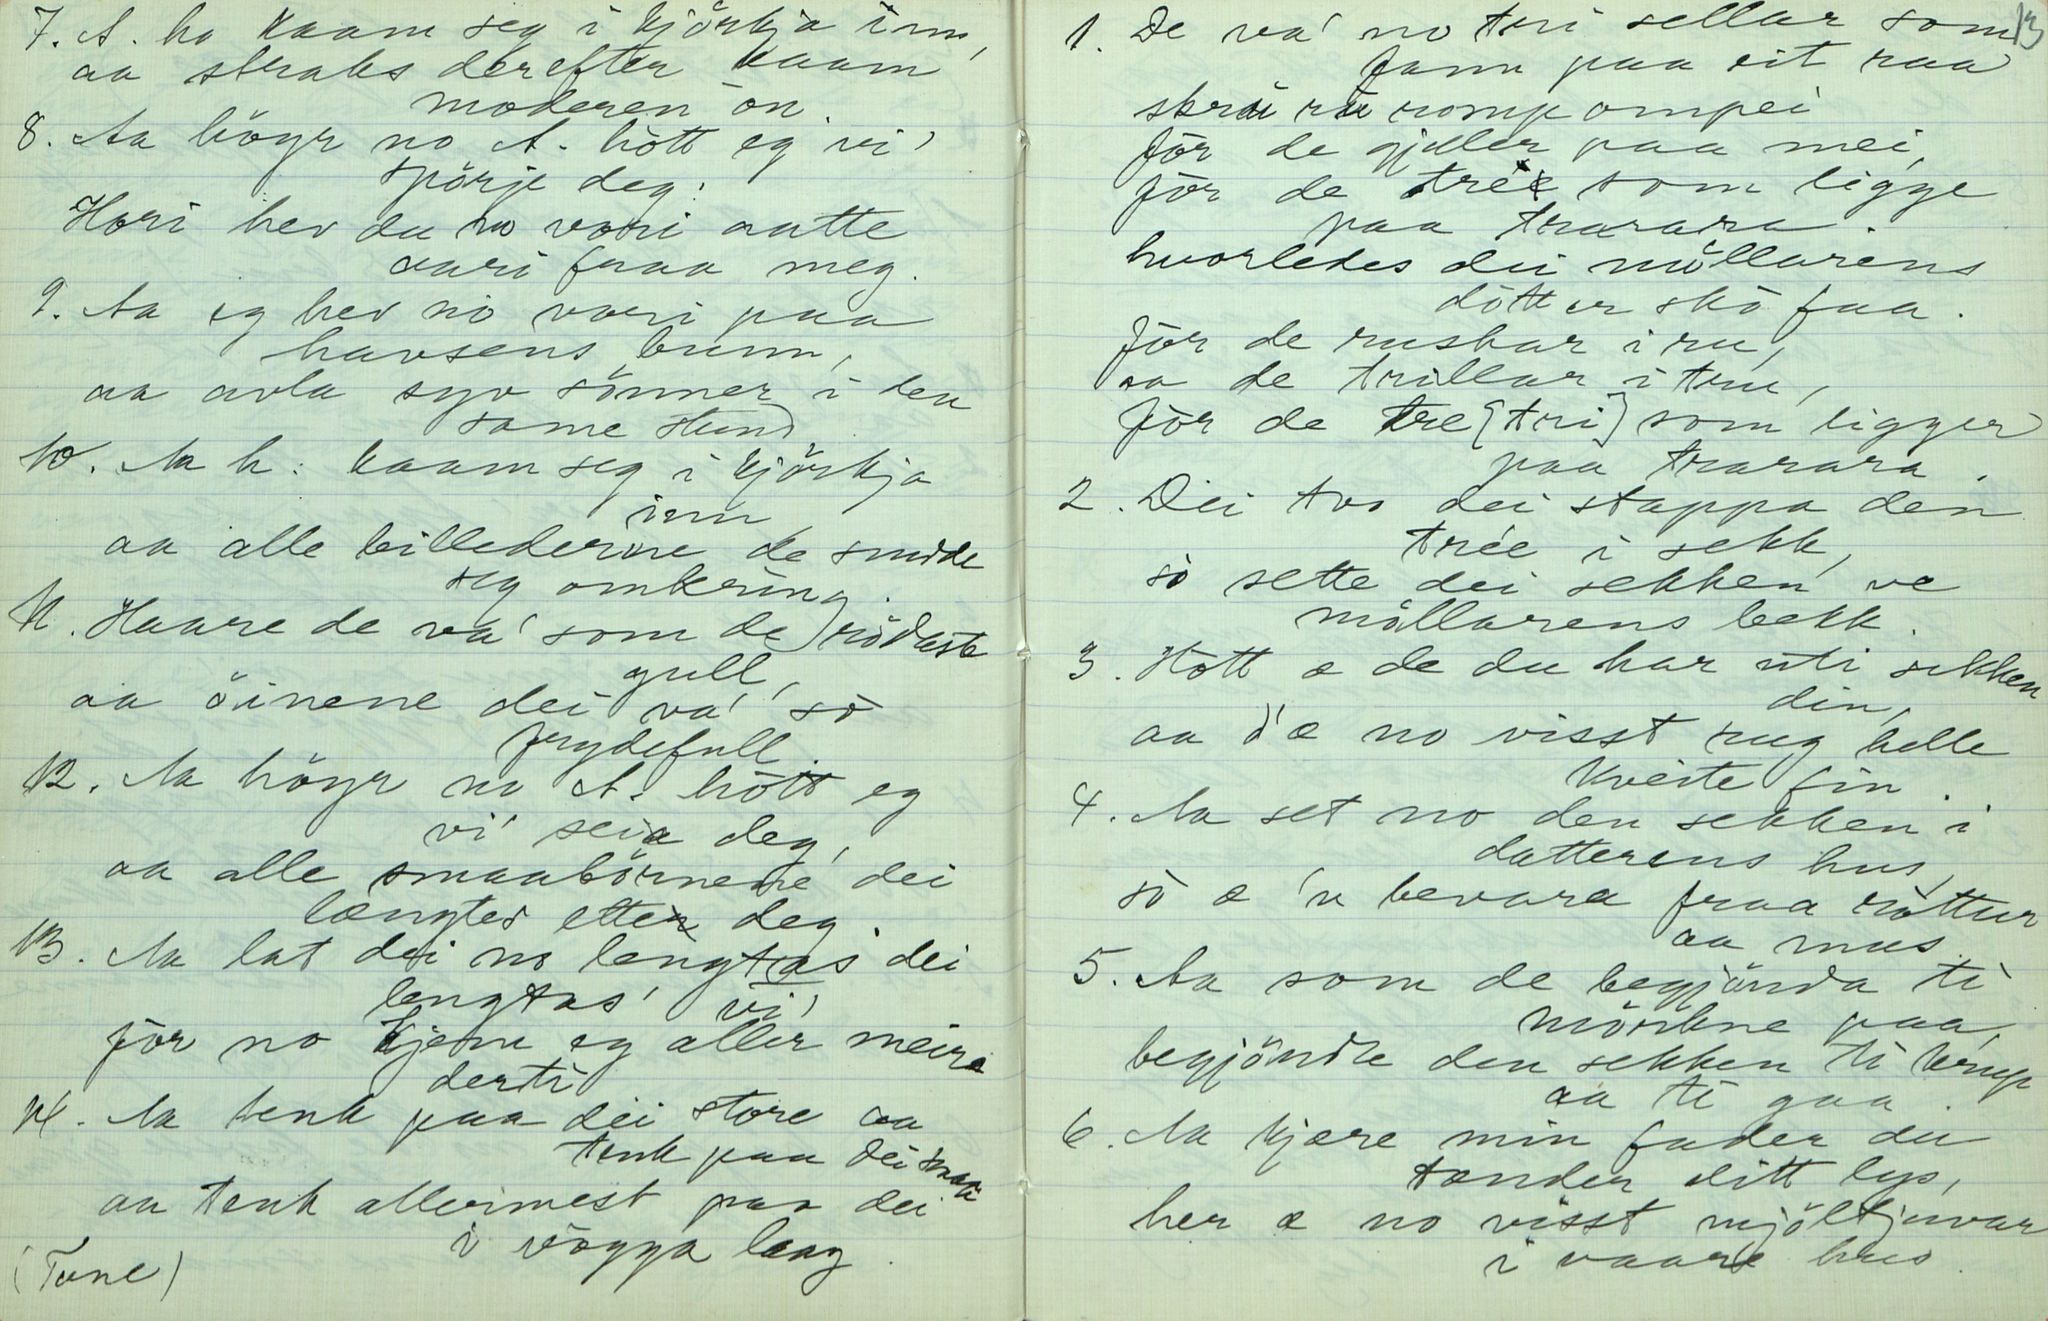 7. A. ho kaam seg i kjörkja inn,
aa straks derefter kaam
moderen ón.
8. Aa höyr no A. hótt eg vi'
spörje deg:
Hori hev du no vori aatte
aari fraa meg.
9. Aa eg hev no vori paa
havsens bunn,
aa avla syv sönner i den
same stund
10. Aa h: kaam seg i kjörkja
inn
aa alle billederne de snudde
seg omkring.
11. Haare de va' som de rödaste
gull,
aa öinene dei va' só
frydefull.
12. Aa höyr no A. hótt eg
vi' seia deg,
aa alle smaabörnene dei
længter etter deg.
13. Aa lat dei no lengtas dei
lengtas' vi'
fór no kjem eg aller meire
derti
14. Aa tenk paa dei store aa
tenk paa dei smaa
aa tenk allermest paa dei
i vögga laag.
(Tone)
13
1. De va' no tri sellar som
fann paa eit raa
skrui ru romp ompei
fór de gjeller paa mei,
fór de tré som ligge
paa trarara.
hvorledes dei möllarens
dótter skó faa.
fór de ruskar i ru,
aa de trillar i tru,
fór de tre [tri] som ligger
paa trarara.
2. Dei tvo dei stappa den
trée i sekk,
só sette dei sekken ve
möllarens bekk.
3. Hótt æ de du har uti sekken
din,
aa d'æ no visst rug helle
kveite fin.
4. Aa set no den sekken i
datterens hus,
só æ 'n bevara fraa róttur
aa mus.
5. Aa som de begjönda ti
mörkne paa,
begjöndte den sekken ti krup
aa ti gaa.
6. Aa kjære min fader du
tænder ditt lys,
her æ no visst mjöltjuvar
i vaare hus.